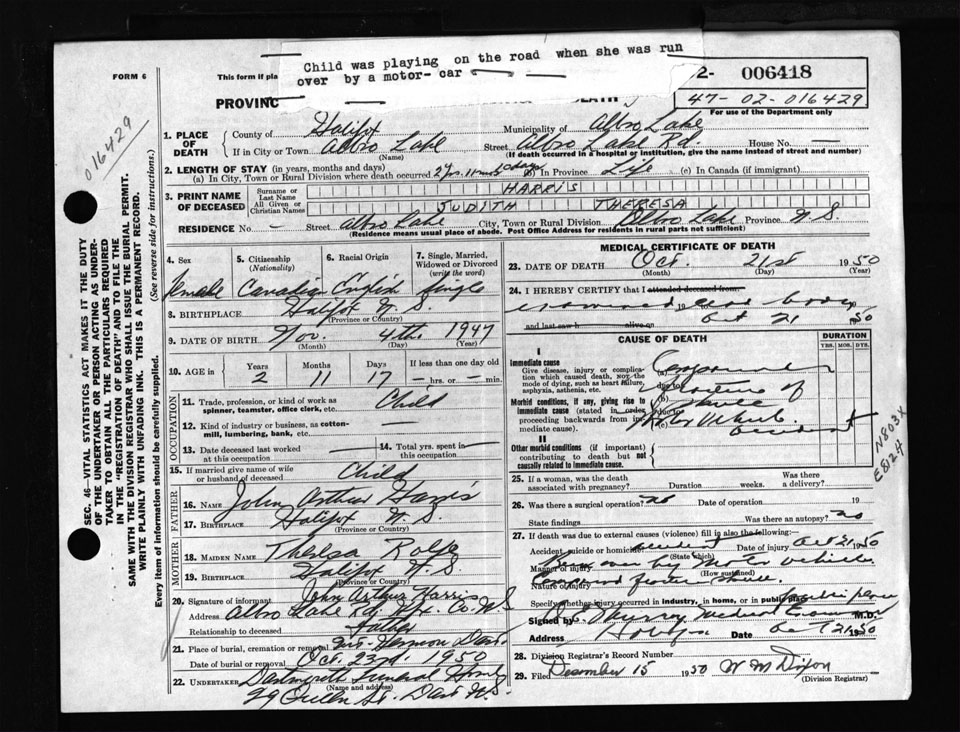 Child was playing on the road when she was run
over by a motor- car
FORM 6
This form if pla
2- 006418
PROVINC
47-02-016429
For use of the Department only
016429
1. PLACE OF DEATH
County of Halifax Municipality of Albro Lake
If in City or Town Albro Lake Street Albro Lake Rd. House No. —
(Name) (If death occurred in a hospital or institution, give the name instead of street and number)
2. LENGTH OF STAY (in years, months and days)
(a) In City, Town or Rural Division where death occurred 2 yrs. 11 mos (b) In Province Life (c) In Canada (if immigrant)
3. PRINT NAME OF DECEASED
Surname or Last Name HARRIS
All Given or Christian Names JUDITH THERESA
RESIDENCE No — Street Albro Lake City, Town or Rural Division Albro Lake Province N.S.
(Residence means usual place of abode. Post Office Address for residents in rural parts not sufficient)
4. Sex female
5. Citizenship (Nationality) Canadian
6. Racial Origin English
7. Single, Married, Widowed or Divorced (write the word) Single
8. BIRTHPLACE Halifax N.S.
(Province or Country)
9. DATE OF BIRTH Nov. 4th 1947
(Month) (Day) (Year)
10. AGE in Years 2 Months 11 Days 17 If less than one day old — hrs. or — min.
OCCUPATION
11. Trade, profession, or kind of work as spinner, teamster, office clerk, etc. Child
12. Kind of industry or business, as cotton-mill, lumbering, bank, etc. —
13. Date deceased last worked at this occupation —
14. Total yrs. spent in this occupation —
15. If married give name of wife or husband of deceased Child
FATHER
16. NAME John Arthur Harris
17. BIRTHPLACE Halifax N.S.
(Province or Country)
MOTHER
18. MAIDEN NAME Theresa Rolfe
19. BIRTHPLACE Halifax N.S.
(Province or Country)
20. Signature of informant John Arthur Harris
Address Albro Lake Rd. Hfx. Co. N.S.
Relationship to deceased Father
21. Place of burial, cremation or removal Mt. Hermon Dart.
Date of burial or removal Oct. 23rd. 1950
22. UNDERTAKER Dartmouth Funeral Home
(Name and address)
29 Queen St. Dart N.S.
MEDICAL CERTIFICATE OF DEATH
23. DATE OF DEATH Oct. 21st 1950
(Month) (Day) (Year)
24. I HEREBY CERTIFY that I attended deceased from
dead body
19
and last saw h alive on Oct 21 1950
CAUSE OF DEATH
DURATION
YRS. MOS. DYS.
I
Immediate cause
Give disease, injury or complication which caused death, not the mode of dying, such as heart failure, asphyxia, asthenia, etc.
(a) Compound
due to
(b) of
Morbid conditions, if any, giving rise to immediate cause (stated in order proceeding backwards from immediate cause).
due to
(c) Motor Vehicle accident
II
Other morbid conditions (if important) contributing to death but not causally related to immediate cause.
N803X
E824
25. If a woman, was the death associated with pregnancy? Duration weeks. Was there a delivery?
26. Was there a surgical operation? no Date of operation 19
State findings Was there an autopsy? no
27. If death was due to external causes (violence) fill in also the following:
Accident, suicide or homicide accident Date of injury Oct 21 1950
(State which)
Manner of injury Run over by Motor vehicle
(How sustained)
Nature of injury Compound fracture
Specify whether injury occurred in industry, in home, or in public place public place
Signed by Murray Medical Examiner M.D.
Address Date Oct 21 1950
28. Division Registrar's Record Number
29. Filed December 15 1950 W M Dixon
(Division Registrar)
SEC. 46—VITAL STATISTICS ACT MAKES IT THE DUTY
OF THE UNDERTAKER OR PERSON ACTING AS UNDER-
TAKER TO OBTAIN ALL THE PARTICULARS REQUIRED
IN THE "REGISTRATION OF DEATH" AND TO FILE THE
SAME WITH THE DIVISION REGISTRAR WHO SHALL ISSUE THE BURIAL PERMIT.
WRITE PLAINLY WITH UNFADING INK. THIS IS A PERMANENT RECORD.
Every item of information should be carefully supplied. (See reverse side for instructions.)